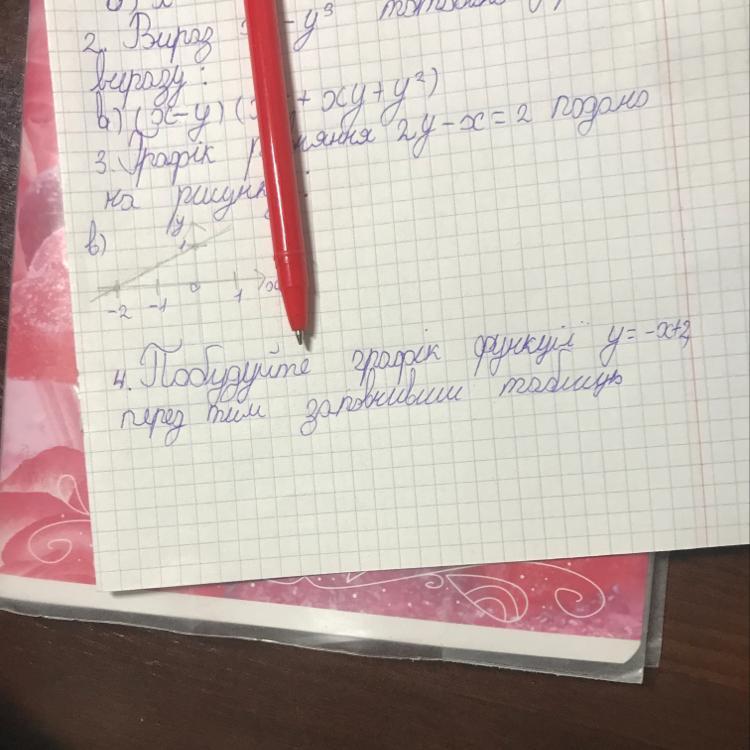 2. Вираз - y³
виразу:
в) (x-y) ( + xy + y²)
3. Графік 2y - x = 2 подано
на
в)
y
1
-2 -1 0 1 x
4. Побудуйте графік функції y = -x+2,
перед тим заповнивши таблицю